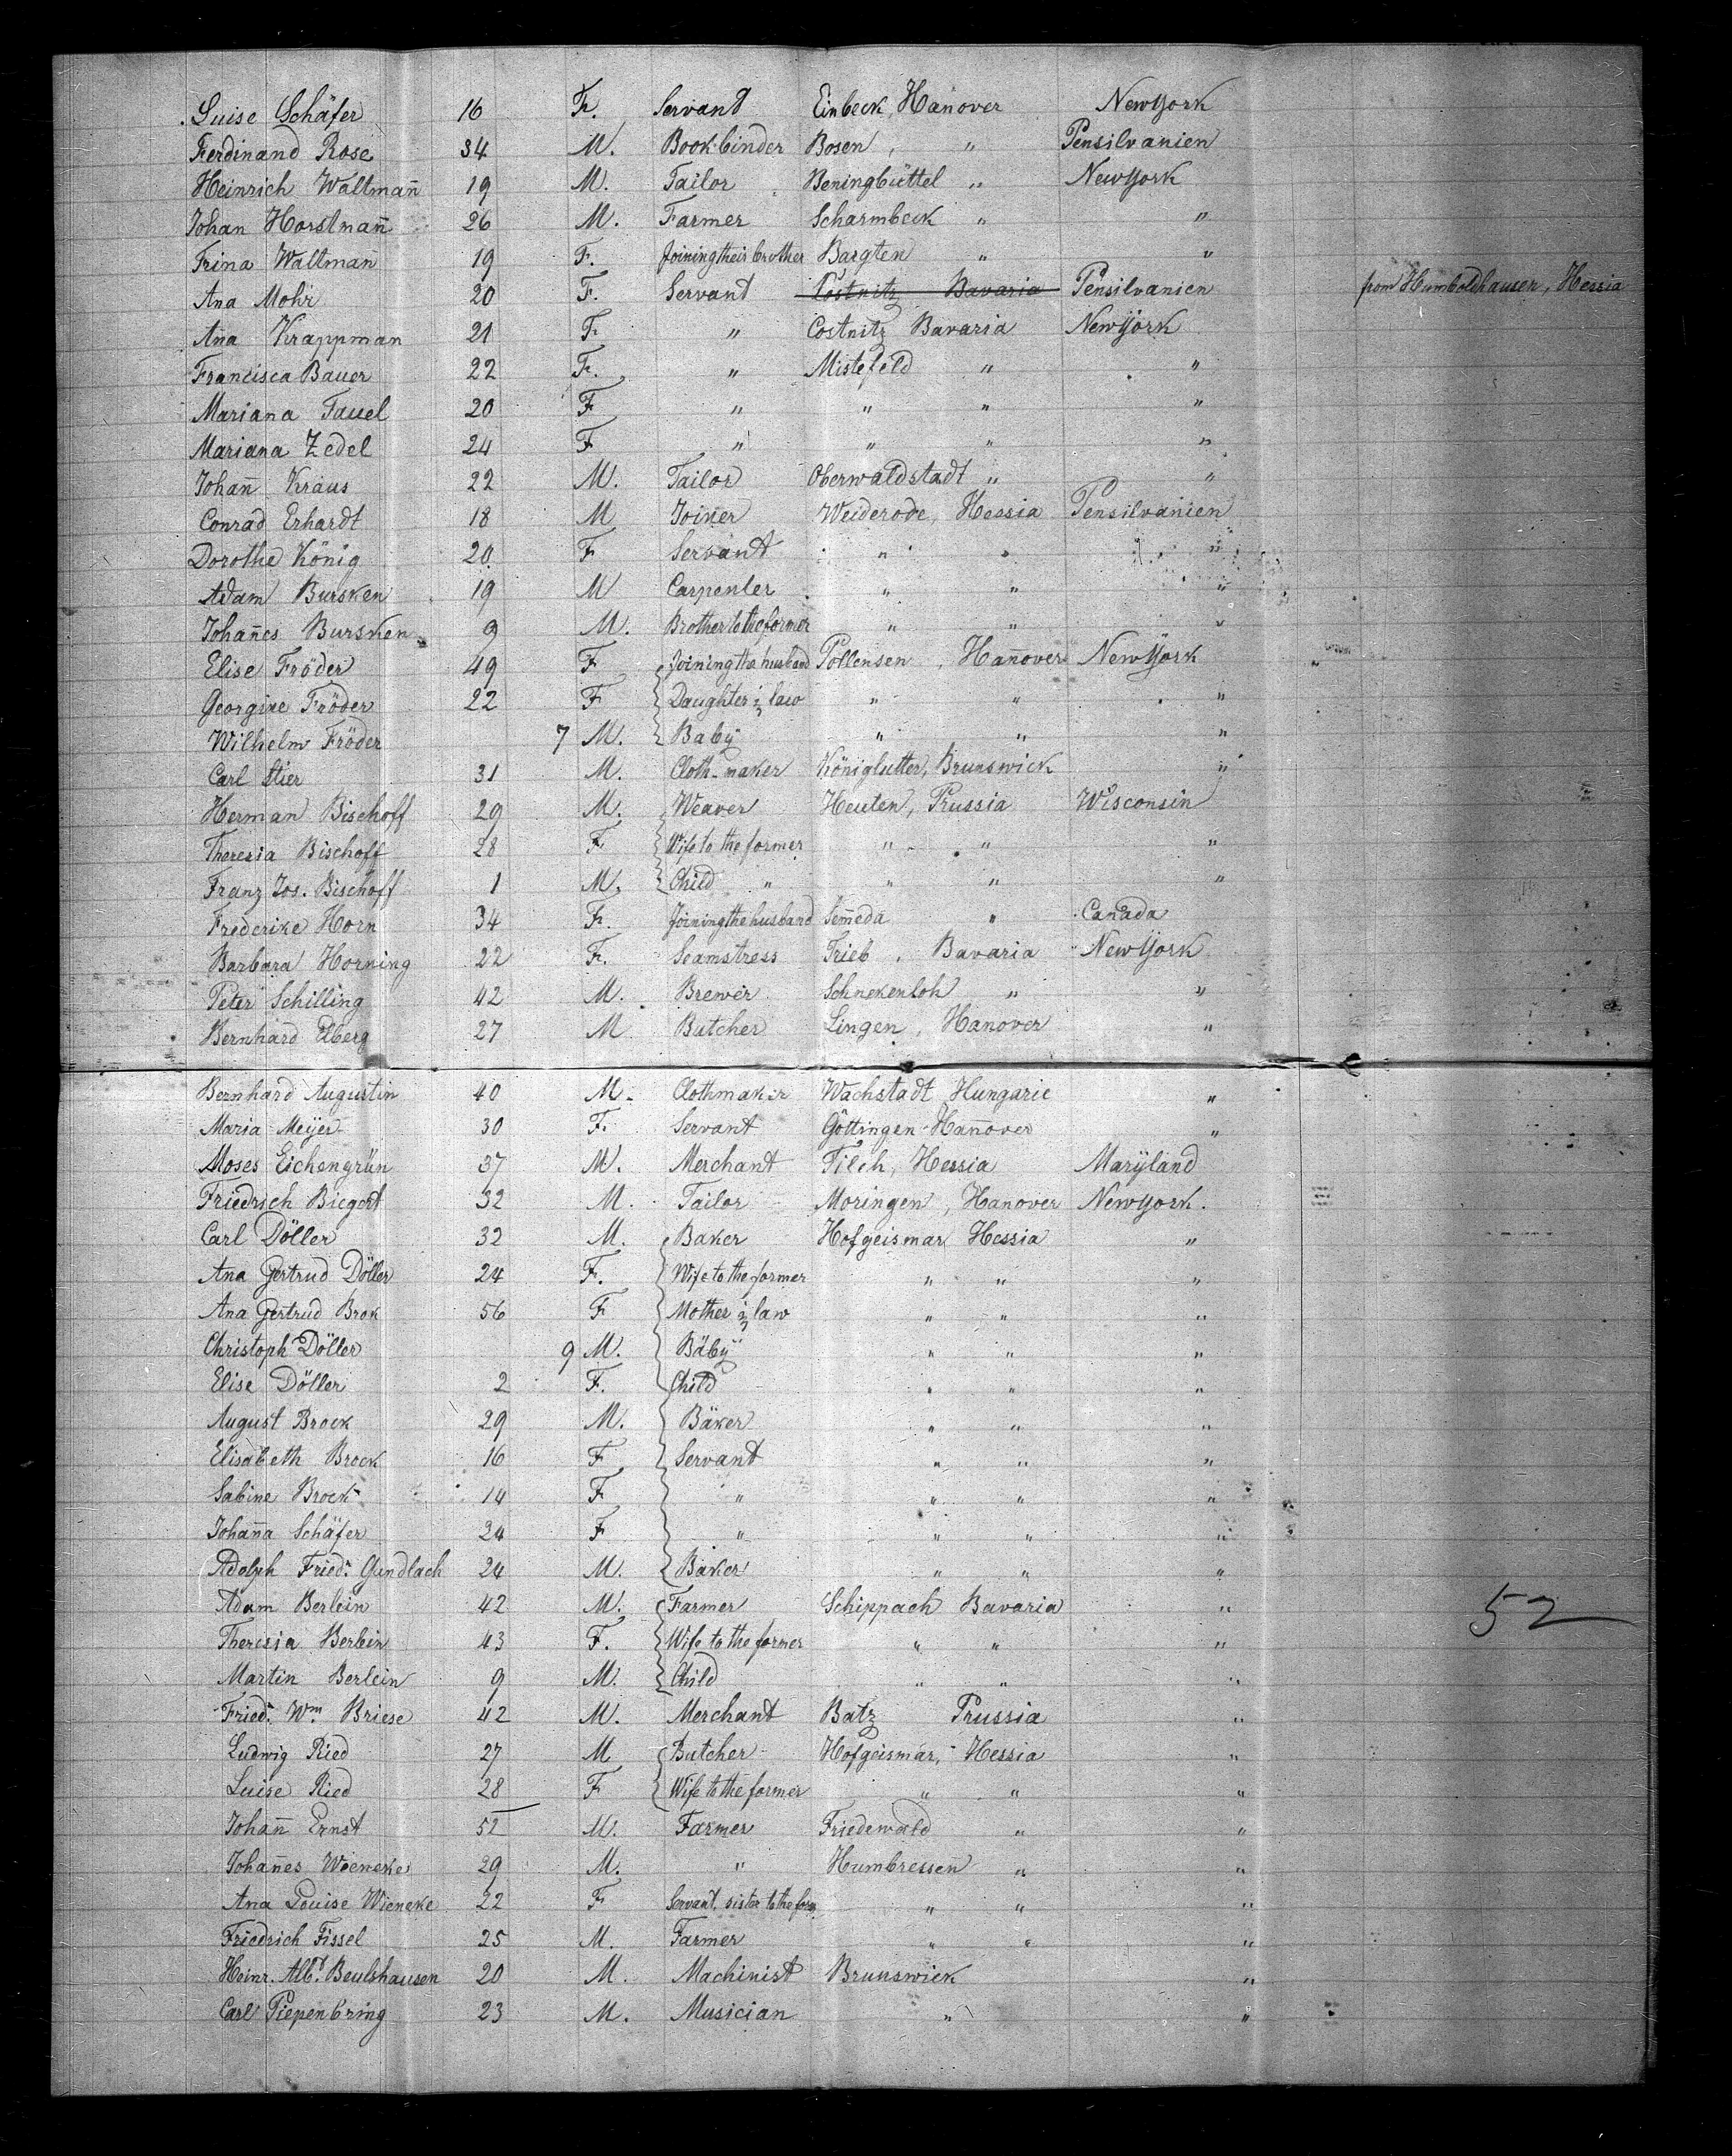 Luise Schäfer 16 F. Servant Einbeck, Hanover New York
Ferdinand Rose 34 M. Bookbinder Bosen, " Pensilvanien
Heinrich Waltmañ 19 M. Tailor Beningbüttel " New York
Johan Horstmañ 26 M. Farmer Scharmbeck " "
Trina Waltman 19 F. Joining their brother Bargten " "
Ana Mohr 20 F. Servant Costnitz Bavaria Pensilvanien from Humboldhausen, Hessia
Ana Krappman 21 F. " Costnitz Bavaria New York
Francisca Bauer 22 F. " Mistefeld " "
Mariana Tauel 20 F " " " "
Mariana Zedel 24 F " " " "
Johañ Kraus 22 M. Tailor Oberwaldstadt " "
Conrad Erhardt 18 M Joiner Weiderode, Hessia Pensilvanien
Dorothe König 20 F Servant " " "
Adam Bursken 19 M Carpenter " " "
Johañes Bursken 9 M. Brother to the former " " "
Elise Fröder 49 F Joining the husband Pollensen, Hañover New York
Georgine Fröder 22 F Daughter in law " " "
Wilhelm Fröder 7 M. Baby " " "
Carl Stier 31 M. Cloth-maker Königlutter, Brunswick "
Herman Bischoff 29 M. Weaver Heuten, Prussia Wisconsin
Theresia Bischoff 28 F Wife to the former " " "
Franz Jos. Bischoff 1 M. Child " " " "
Frederike Horn 34 F. Joining the husband Semeda " Canada
Barbara Horning 22 F. Seamstress Trieb, Bavaria New York
Peter Schilling 42 M. Brewer Schnekenloh " "
Bernhard Elberg 27 M Butcher Lingen, Hanover "
Bernhard Augustin 40 M. Clothmaker Wachstadt Hungarie "
Maria Meijer 30 F. Servant Göttingen Hanover "
Moses Eichengrün 37 M. Merchant Tilch, Hessia Maryland
Friedrich Biegert 32 M. Tailor Moringen, Hanover New York.
Carl Döller 32 M. Baker Hofgeismar Hessia "
Ana Gertrud Döller 24 F. Wife to the former " " "
Ana Gertrud Brok 56 F Mother in law " " "
Christoph Döller 9 M. Baby " " "
Elise Döller 2 F. Child " " "
August Brock 29 M. Baker " " "
Elisabeth Brock 16 F Servant " " "
Sabine Brock 14 F " " " "
Johaña Schäfer 24 F " " " "
Adolph Fried. Gundlach 24 M. Baker " " "
Adam Berlein 42 M. Farmer Schippach Bavaria " 52
Theresia Berlein 43 F. Wife to the former " " "
Martin Berlein 9 M. Child " " "
Fried. Wm. Briese 42 M. Merchant Batz Prussia "
Ludwig Ried 27 M Butcher Hofgeismar, Hessia "
Luise Ried 28 F Wife to the former " " "
Johañ Ernst 52 M. Farmer Friedewald " "
Johañes Wieneke 29 M. " Humbressen " "
Ana Louise Wieneke 22 F Servant, sister to the form. " " "
Friedrich Fissel 25 M. Farmer " " "
Heinr. Albt. Beulshausen 20 M. Machinist Brunswick "
Carl Piepenbring 23 M. Musician " "